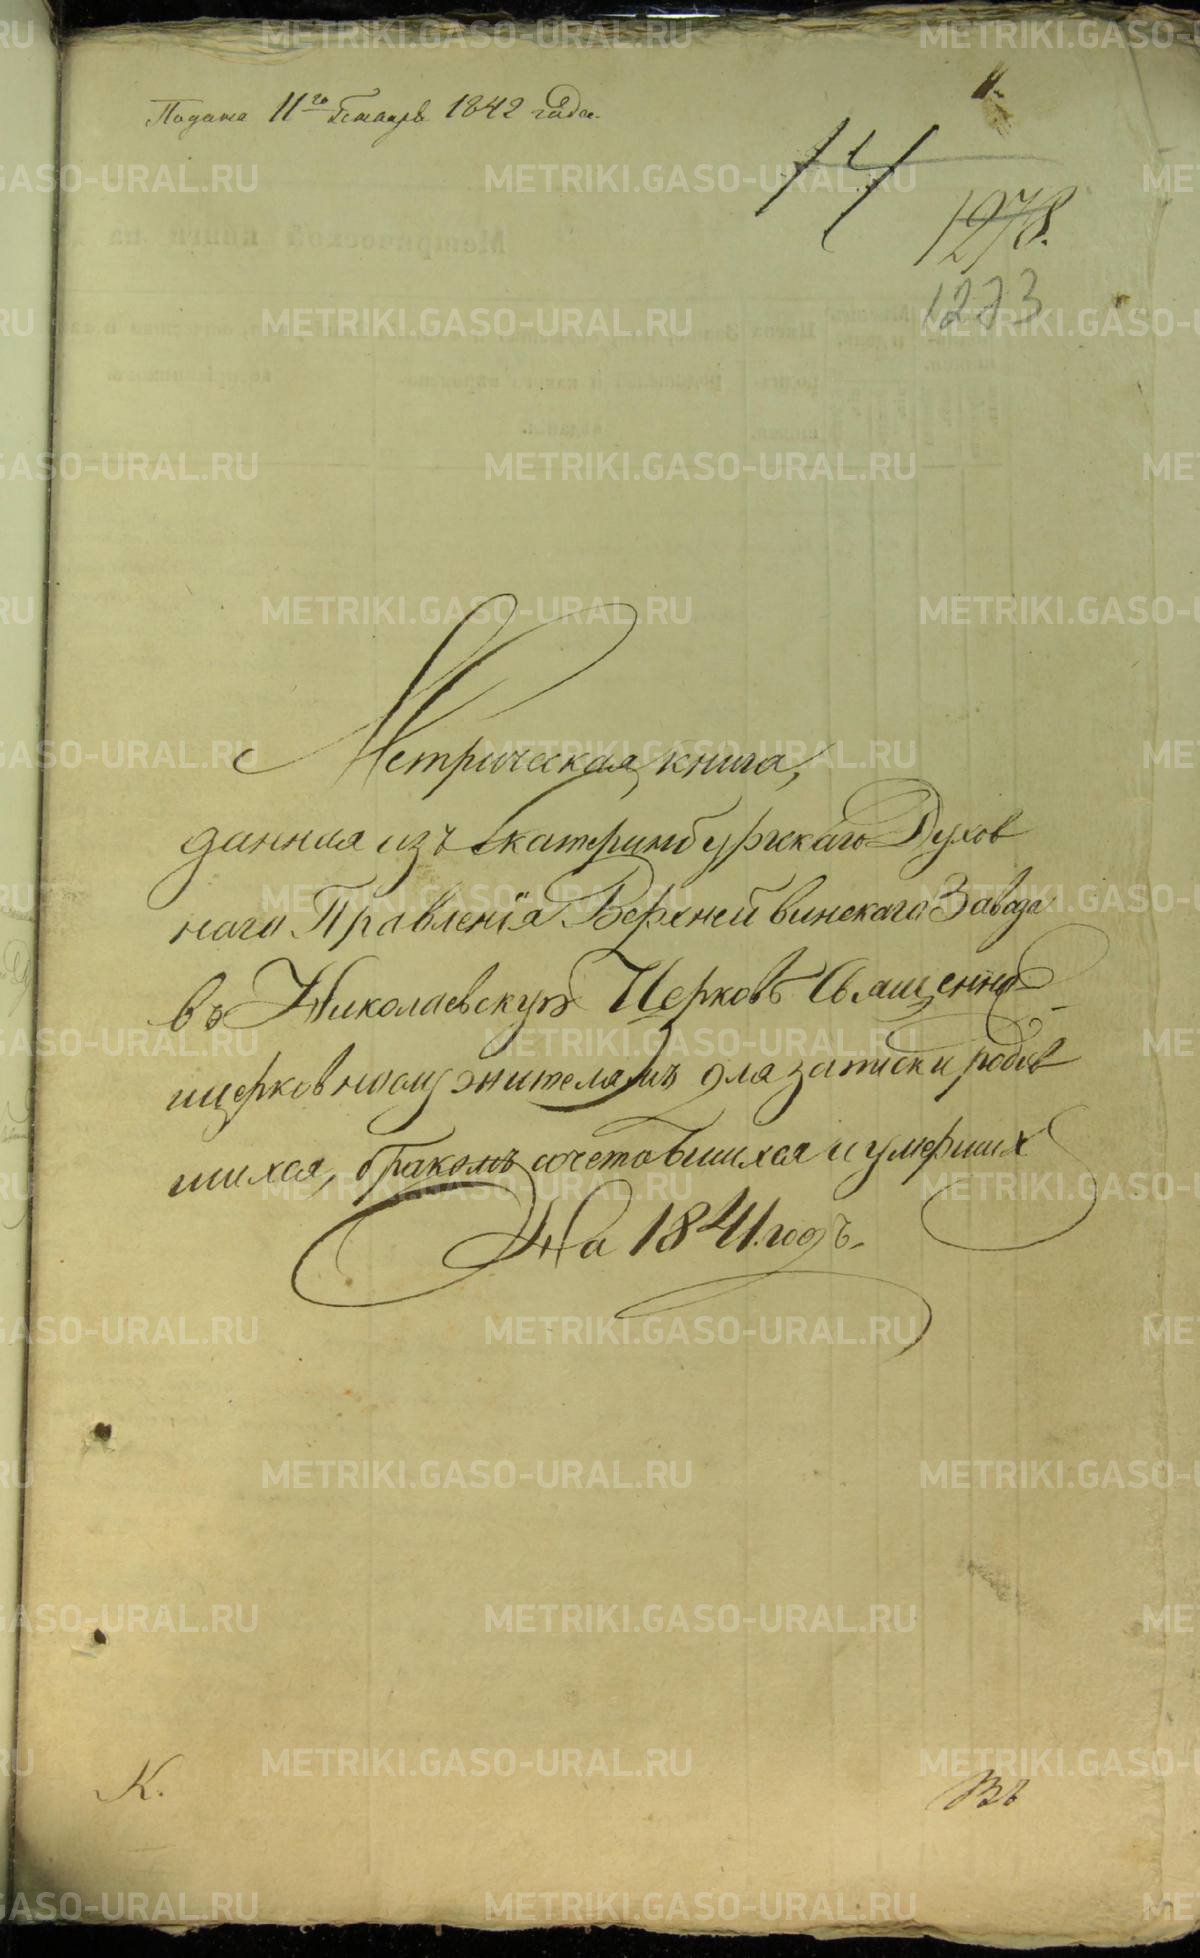 Подана 11го Генваря 1842 года.
14
1278.
1273
Метрическая книга,
данная изъ Екатеринбургскаго Духов
наго Правленія Верхнейвинскаго Завода
въ Николаевскую Церковь Священно
ицерковнослужителямъ для записки родив
шихся, бракомъ сочетавшихся и умершихъ
На 1841. годъ.
К.
Въ
METRIKI.GASO-URAL.RU